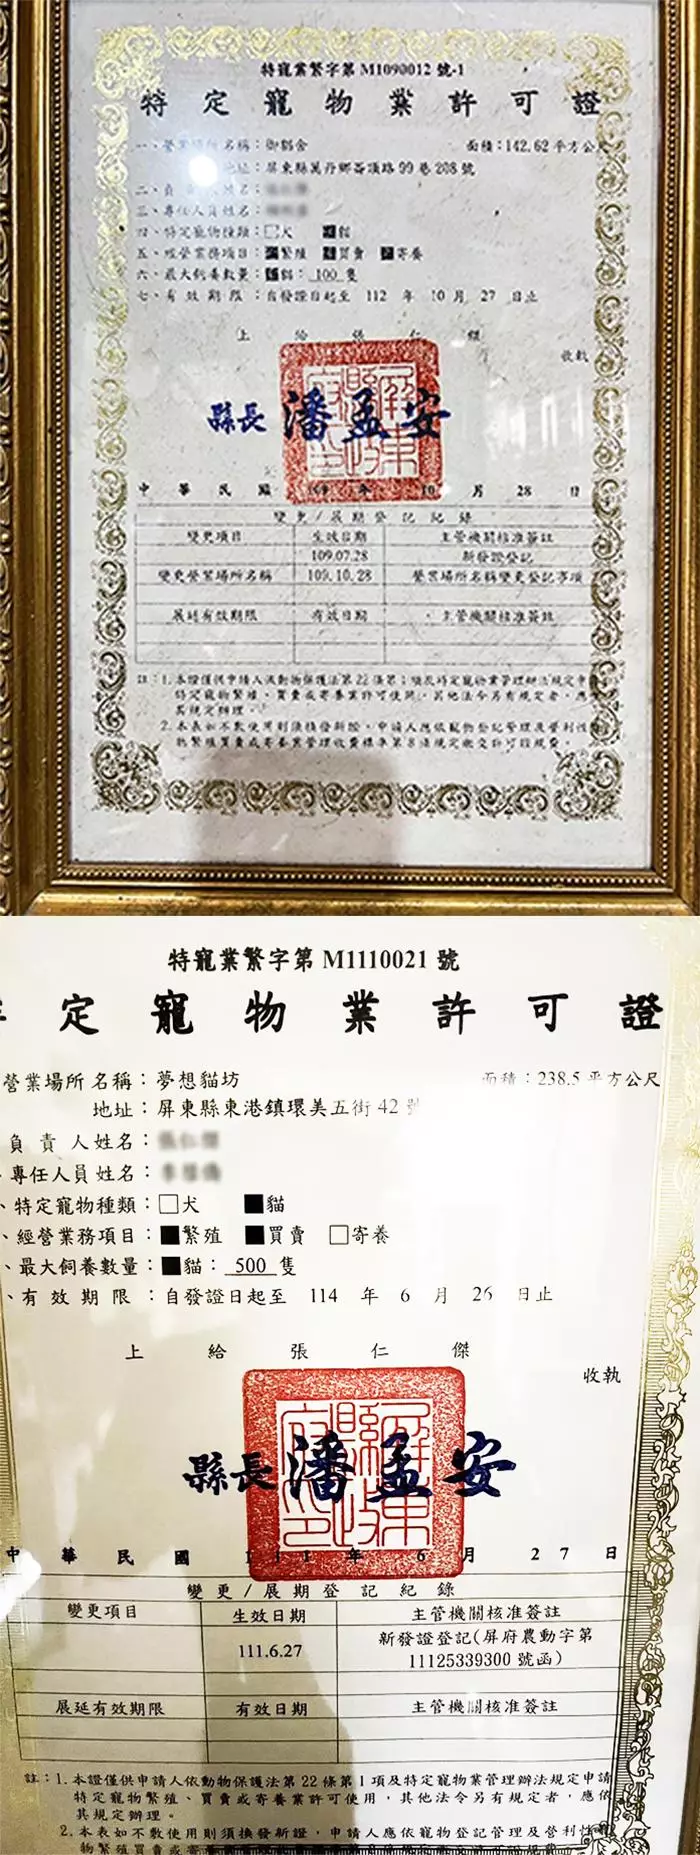 特寵業繁字第M1090012號-1
特定寵物業許可證
一、營業場所名稱：御貓舍 面積：142.62平方公尺
地址：屏東縣萬丹鄉崙頂路99巷208號
二、負 人姓名：
三、專任人員姓名：
四、特定寵物種類：□犬 ■貓
五、經營業務項目：■繁殖 ■買賣 ■寄養
六、最大飼養數量：■貓：100隻
七、有效期限：自發證日起至 112 年 10 月 27 日止
上給張仁傑
收執
縣長潘孟安
中華民國 109 年 10 月 28 日
變更/展期登記紀錄
變更項目 生效日期 主管機關核准簽註
109.07.28 新發證登記
變更營業場所名稱 109.10.28 營業場所名稱變更登記事項
展延有效期限 有效日期 主管機關核准簽註
註：1.本證僅供申請人依動物保護法第22條第1項及特定寵物業管理辦法規定申
特定寵物繁殖、買賣或寄養業許可使用，其他法令另有規定者，應
其規定辦理。
2.本表如不敷使用則須換發新證，申請人應依寵物登記管理及營利性
物繁殖買賣或寄養業管理收費標準第8條規定繳交許可證規費。
特寵業繁字第M1110021號
定寵物業許可證
營業場所名稱：夢想貓坊 面積：238.5平方公尺
地址：屏東縣東港鎮環美五街42號
負責人姓名：
專任人員姓名：
、特定寵物種類：□犬 ■貓
、經營業務項目：■繁殖 ■買賣 □寄養
、最大飼養數量：■貓：500隻
、有效期限：自發證日起至 114 年 6 月 26 日止
上給張仁傑
收執
縣長潘孟安
中華民國 111 年 6 月 27 日
變更/展期登記紀錄
變更項目 生效日期 主管機關核准簽註
111.6.27 新發證登記(屏府農動字第
11125339300號函)
展延有效期限 有效日期 主管機關核准簽註
註：1.本證僅供申請人依動物保護法第22條第1項及特定寵物業管理辦法規定申請
特定寵物繁殖、買賣或寄養業許可使用，其他法令另有規定者，應依
其規定辦理。
2.本表如不敷使用則須換發新證，申請人應依寵物登記管理及營利性
物繁殖買賣或寄養